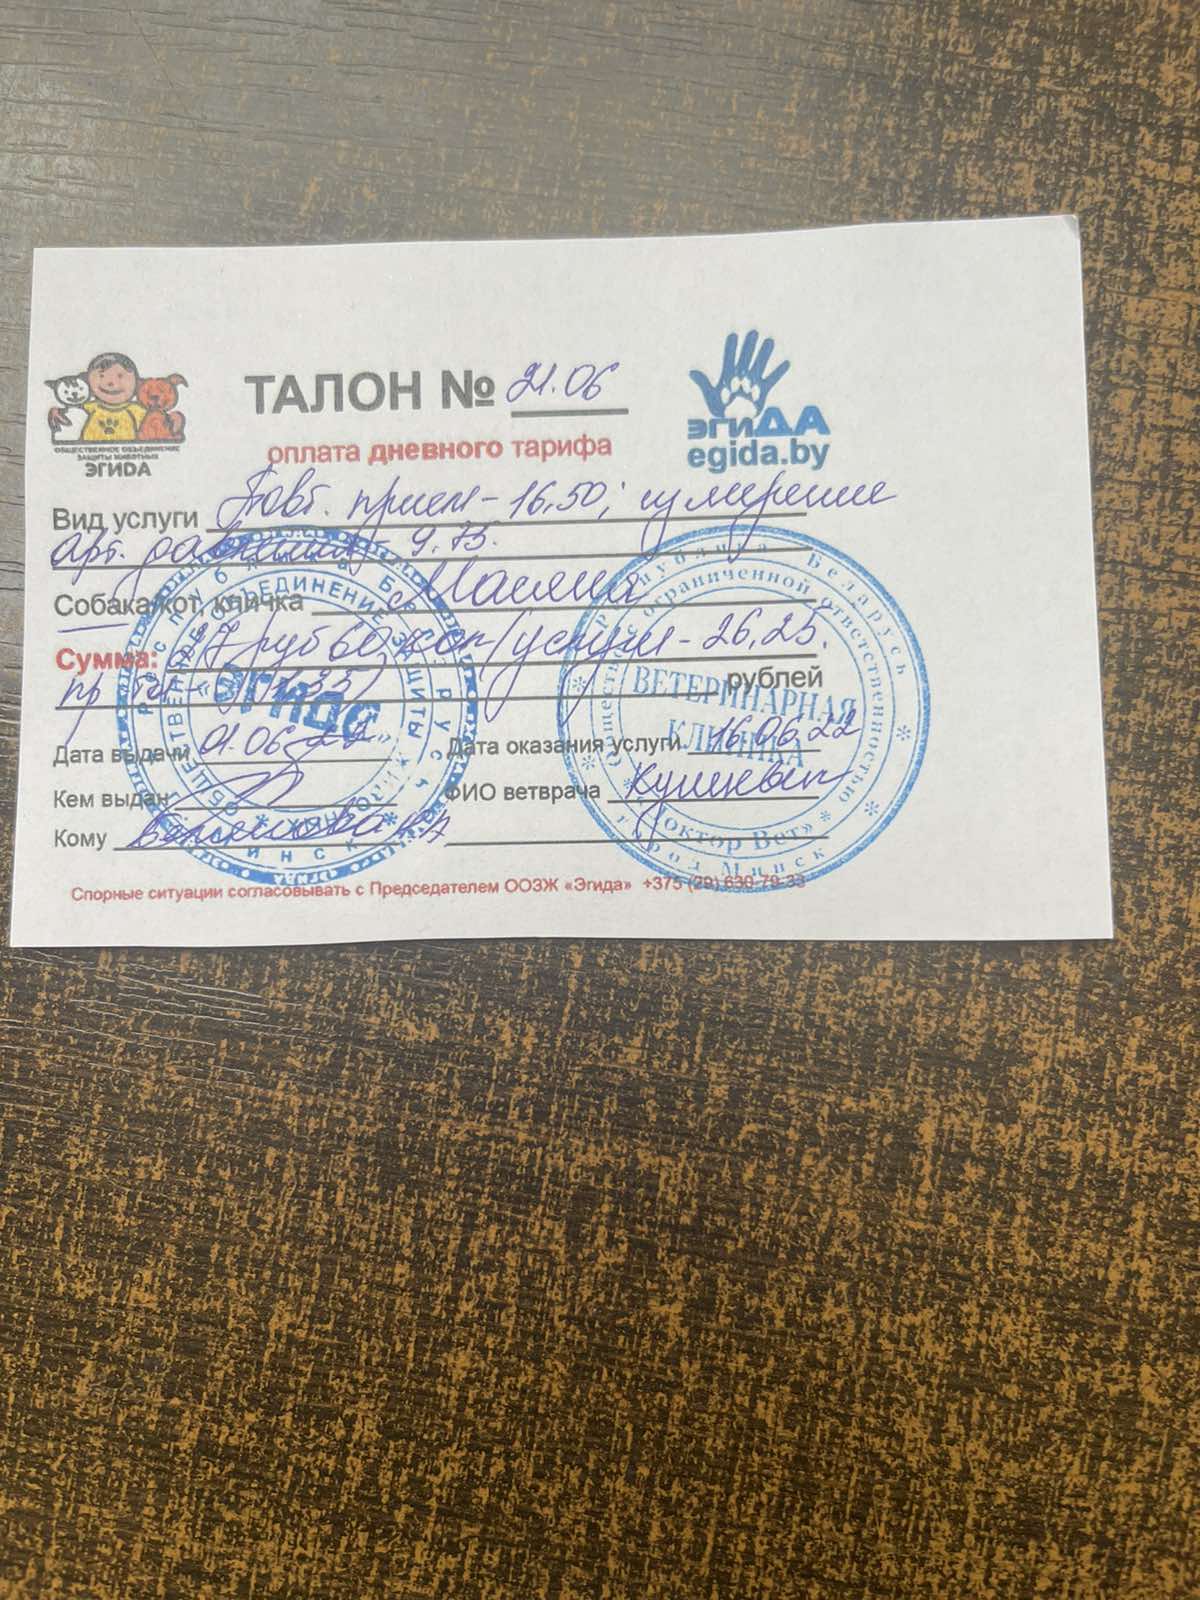 ОБЩЕСТВЕННОЕ ОБЪЕДИНЕНИЕ
ЗАЩИТЫ ЖИВОТНЫХ
ЭГИДА
ТАЛОН № 21.06
оплата дневного тарифа
эгиДА
egida.by
Вид услуги Повт. прием - 16,50; измерение
арт. давления - 9.75.
Собака/кот, кличка Масяня
Сумма: 27 руб 60 коп (услуги - 26,25.
1,35) рублей
Дата выдачи 01.06.22 Дата оказания услуги 16.06.22
Кем выдан ФИО ветврача
Кому
Спорные ситуации согласовывать с Председателем ООЗЖ «Эгида» +375 (29) 630-79-33
Республика Беларусь
ОБЩЕСТВЕННОЕ ОБЪЕДИНЕНИЕ ЗАЩИТЫ ЖИВОТНЫХ
«ЭГИДА»
МИНСК
Республика Беларусь
Общество с ограниченной ответственностью
ВЕТЕРИНАРНАЯ
КЛИНИКА
«Доктор Вет»
город Минск